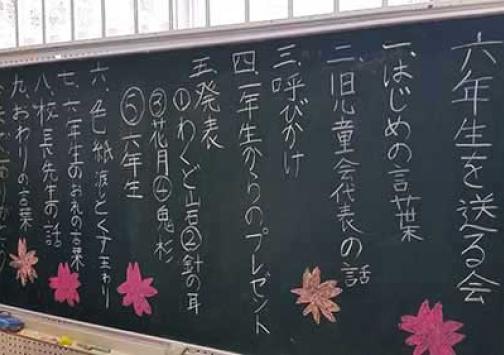 六年生を送る会
一、はじめの言葉
二、児童会代表の話
三、呼びかけ
四、一年生からのプレゼント
五、発表
①わくど岩②針の耳
③花月④鬼杉
⑤六年生
六、色紙渡しとくす玉わり
七、六年生のお礼の言葉
八、校長先生の話
九、おわりの言葉